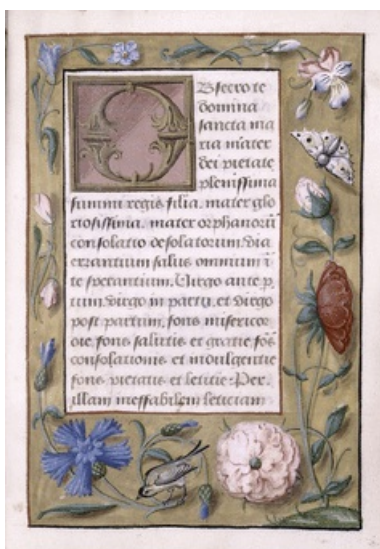 Obsecro te
domina
sancta ma
ria mater
dei pietate
plenissima
summi regis filia. mater glo
riosissima. mater orphanorū
consolatio desolatorum. via
errantium salus omnium ī
te sperantium. Virgo ante p̱
tum. virgo in partu. et virgo
post partum. fons misericor
die fons salutis et gratie fōs
consolationis et indulgentie
fons pietatis et letitie. Per.
illam ineffabilem leticiam